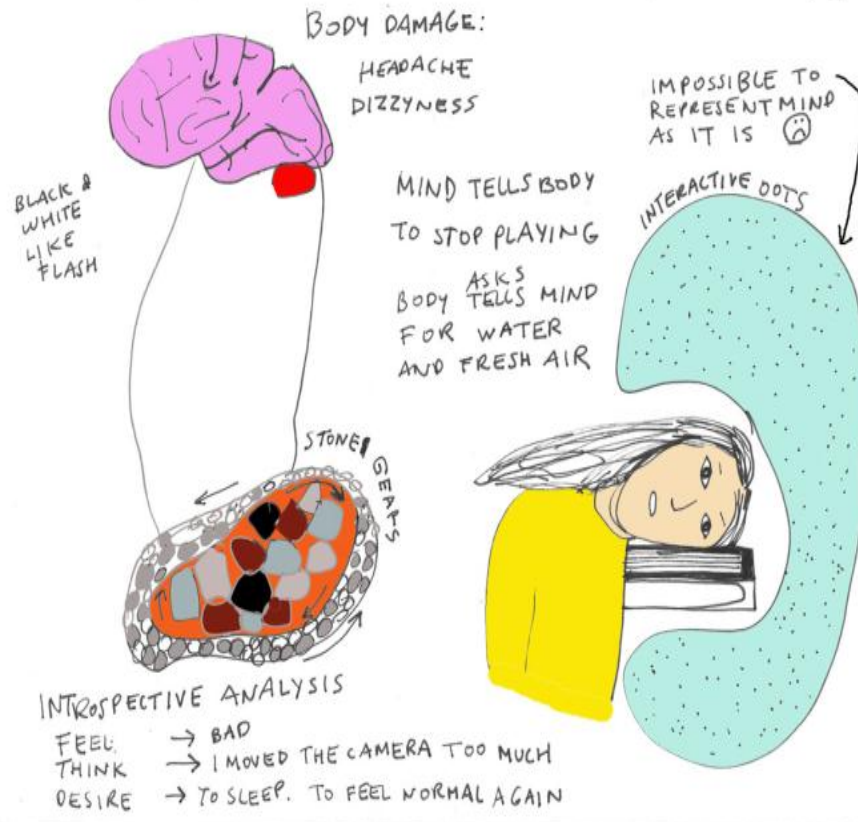 BODY DAMAGE:
HEADACHE
DIZZYNESS
IMPOSSIBLE TO
REPRESENT MIND
AS IT IS
BLACK &
WHITE
LIKE
FLASH
MIND TELLS BODY
TO STOP PLAYING
ASKS
BODY TELLS MIND
FOR WATER
AND FRESH AIR
INTERACTIVE DOTS
STONE GEARS
INTROSPECTIVE ANALYSIS
FEEL → BAD
THINK → I MOVED THE CAMERA TOO MUCH
DESIRE → TO SLEEP. TO FEEL NORMAL AGAIN